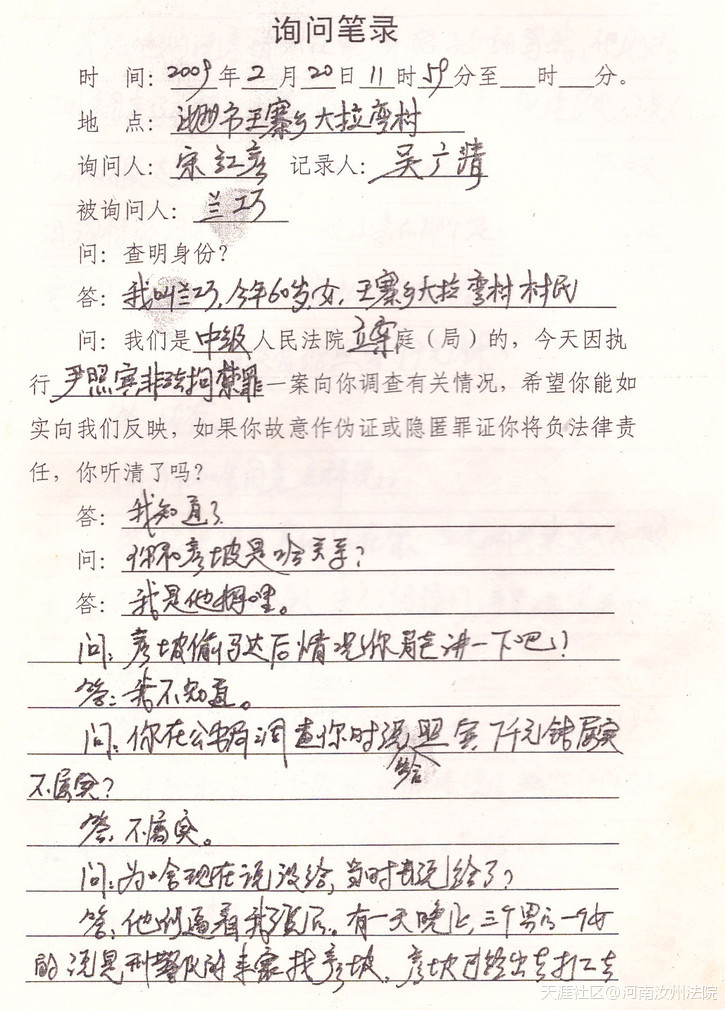 询问笔录
时 间：2009年2月20日11时59分至 时 分。
地 点： 市王寨乡大拉弯村
询问人：宋红彦 记录人：吴广清
被询问人：兰巧
问：查明身份？
答：我叫兰巧，今年60岁，女，王寨乡大拉弯村村民
问：我们是中级人民法院立案庭（局）的，今天因执
行尹照宾非法拘禁罪一案向你调查有关情况，希望你能如
实向我们反映，如果你故意作伪证或隐匿罪证你将负法律责
任，你听清了吗？
答：我知道了
问：你和彦坡是啥关系？
答：我是他 哩。
问：彦坡偷马达后情况你 讲一下吧？
答：我不知道。
问：你在公安局调查你时说给照宾 千元钱属实
不属实？
答：不属实。
问：为啥现在说没给，当时 说给了？
答：他们逼着我 。有一天晚上，三个男的一个女
的说是刑警队的来家找彦坡。彦坡已经出去打工去
天涯社区@河南汝州法院